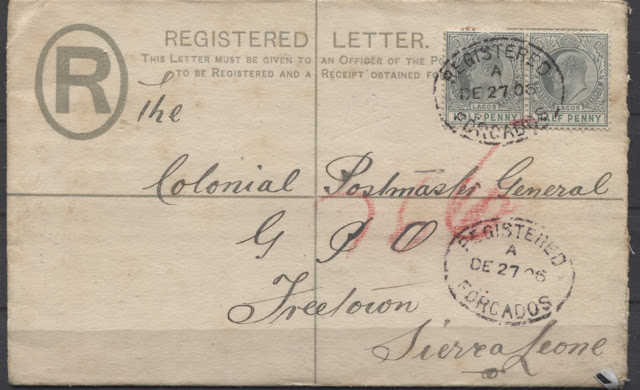 R
REGISTERED LETTER.
THIS LETTER MUST BE GIVEN TO AN OFFICER OF THE
TO BE REGISTERED AND A RECEIPT OBTAINED
LAGOS
HALF PENNY
LAGOS
HALF PENNY
REGISTERED
A
DE 27 06
FORCADOS
The
Colonial Postmaster General
G P O
Freetown
Sierra Leone
REGISTERED
A
DE 27 06
FORCADOS